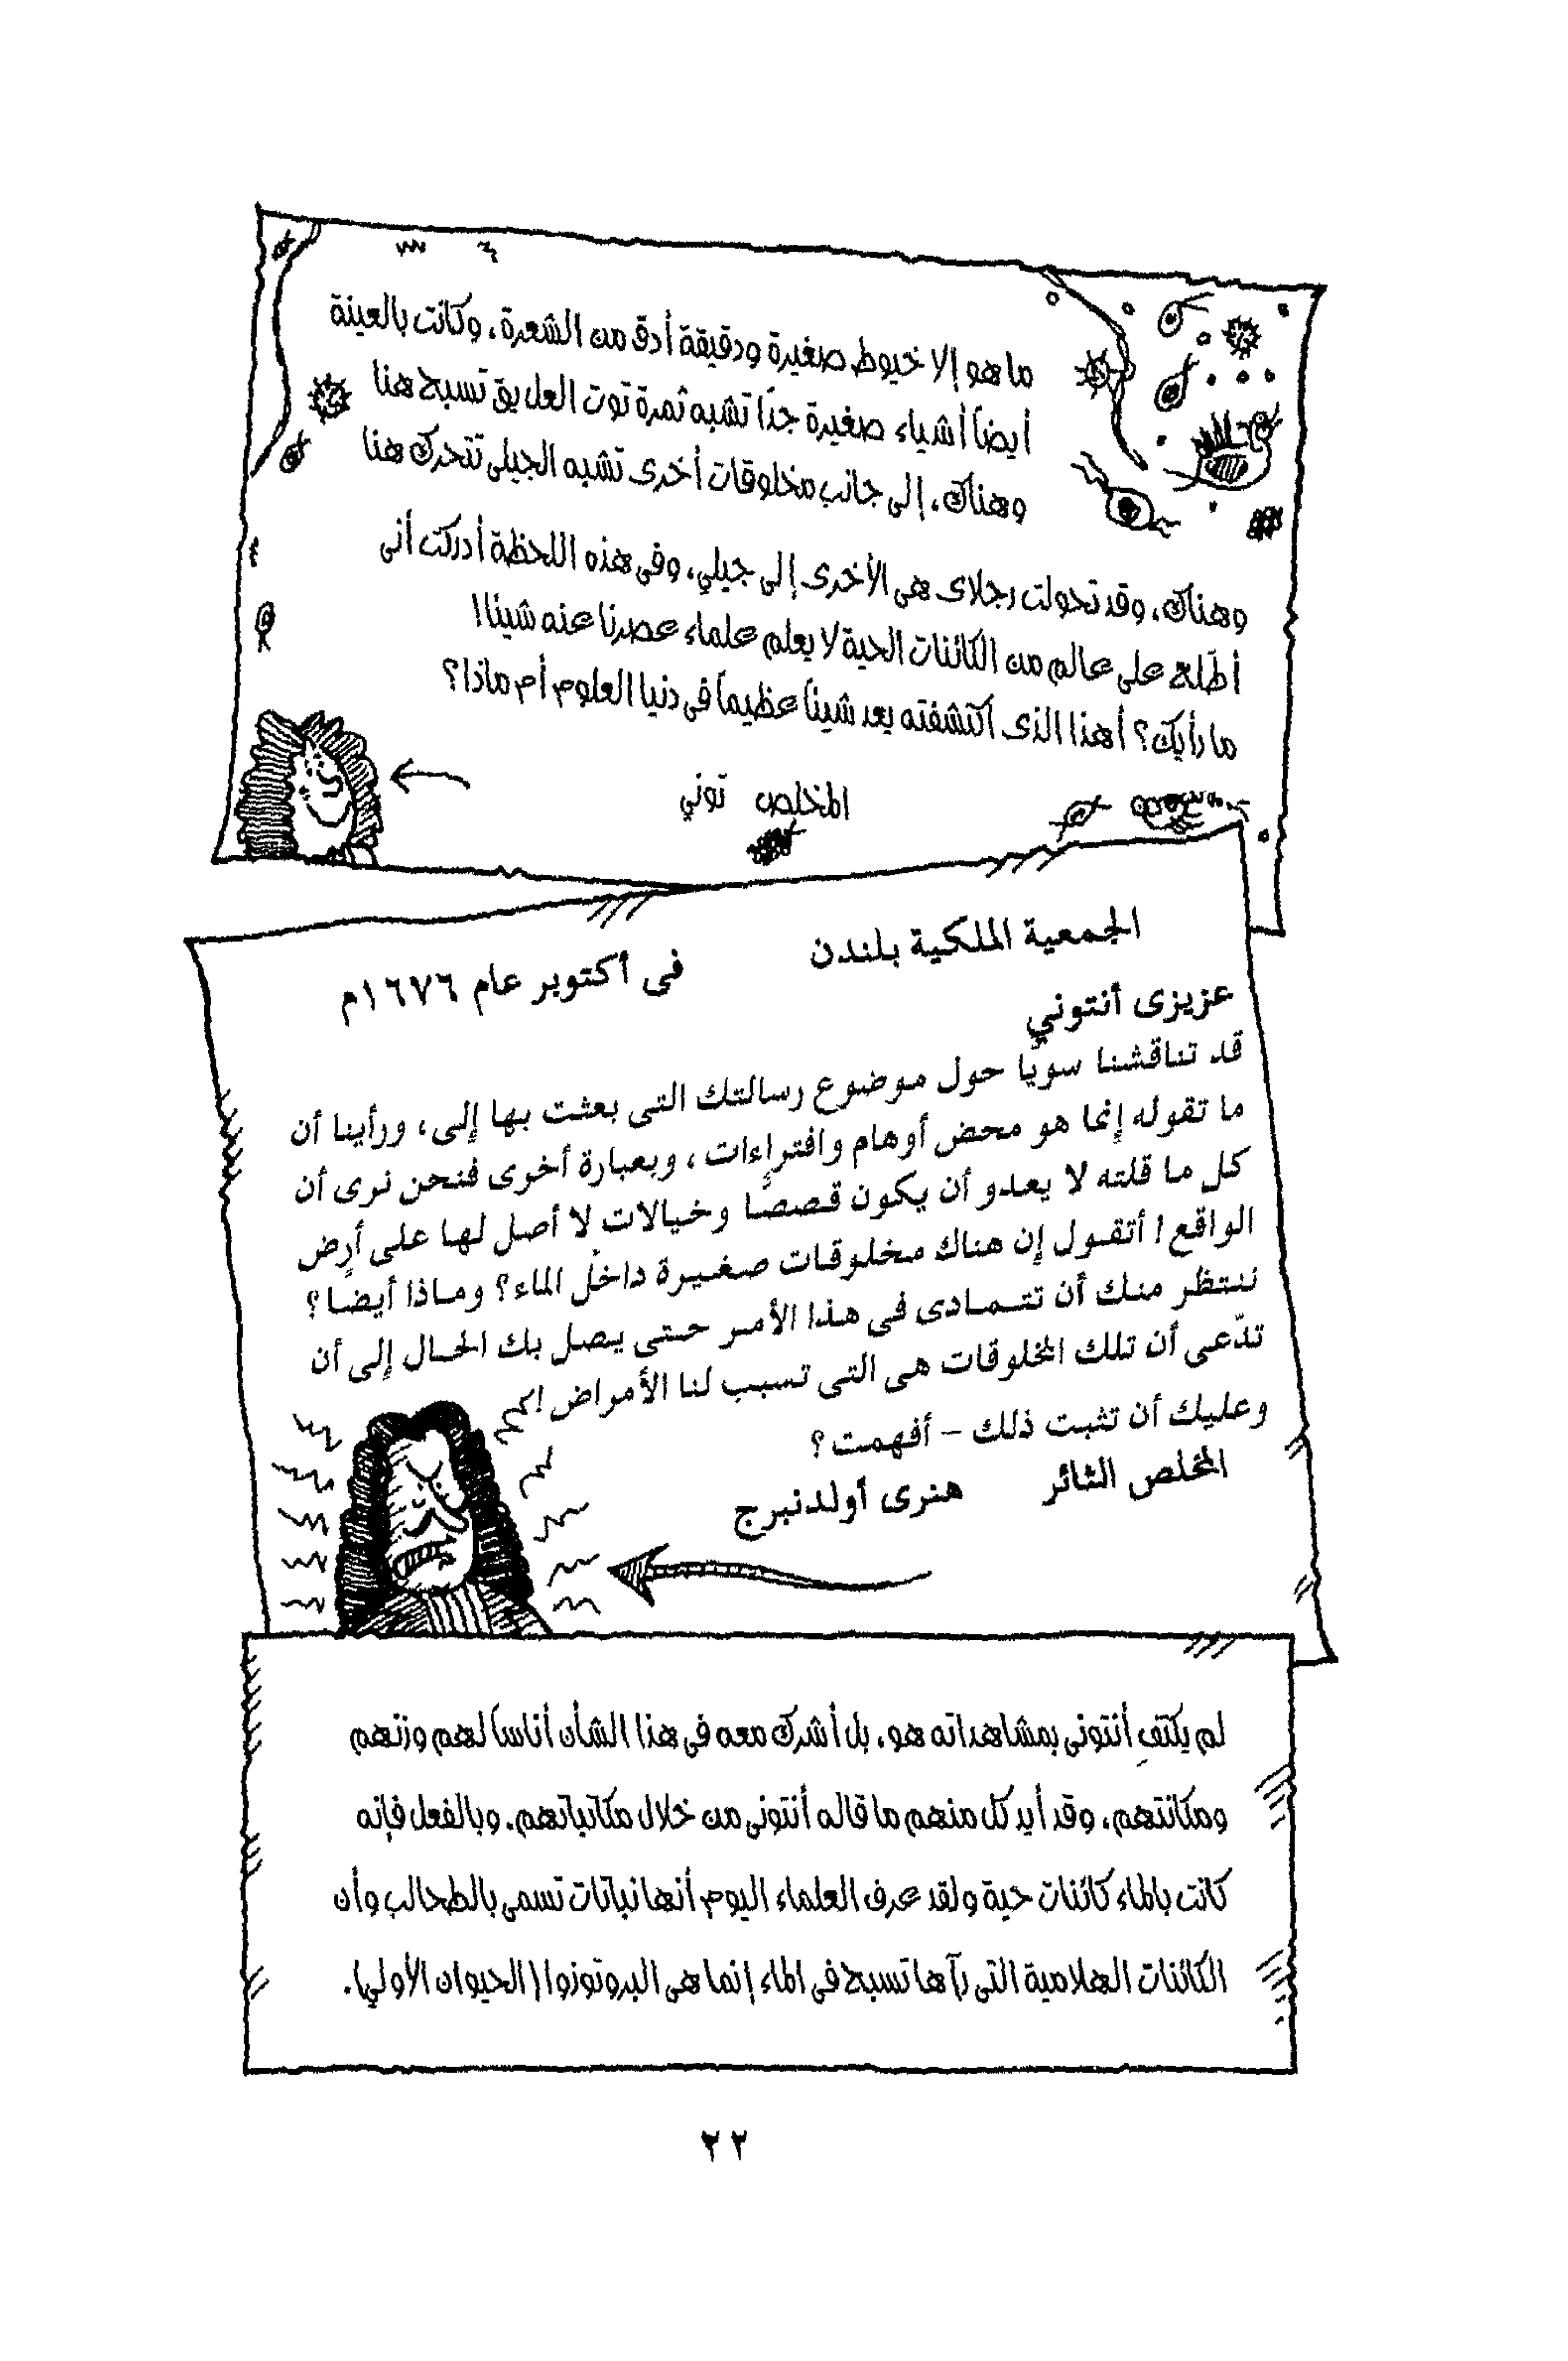 ما هو إلا خيوط صغيرة ودقيقة أدق من الشعرة، وكانت بالعينة
أيضاً أشياء صغيرة جداً تشبه ثمرة توت العليق تسبح هنا
وهناك، إلى جانب مخلوقات أخرى تشبه الجيلى تتحرك هنا
وهناك، وقد تحولت رجلاى هى الأخرى إلى جيلي، وفى هذه اللحظة أدركت أنى
أطّلع على عالم من الكائنات الحية لا يعلم علماء عصرنا عنه شيئا!
ما رأيك؟ أهذا الذى اكتشفته يعد شيئاً عظيماً فى دنيا العلوم أم ماذا؟
المخلص توني
الجمعية الملكية بلندن فى أكتوبر عام ١٦٧٦م
عزيزى أنتوني
قد تناقشنا سويًا حول موضوع رسالتك التى بعثت بها إلى، ورأينا أن
ما تقوله إنما هو محض أوهام وافتراءات، وبعبارة أخرى فنحن نرى أن
كل ما قلته لا يعدو أن يكون قصصًا وخيالات لا أصل لها على أرض
الواقع! أتقول إن هناك مخلوقات صغيرة داخل الماء؟ وماذا أيضًا؟
ننتظر منك أن تتمادى فى هذا الأمر حتى يصل بك الحال إلى أن
تدّعى أن تلك المخلوقات هى التى تسبب لنا الأمراض!
وعليك أن تثبت ذلك – أفهمت؟
المخلص الثائر هنرى أولدنبرج
لم يكتفِ أنتونى بمشاهداته هو، بل أشرك معه فى هذا الشأن أناساً لهم وزنهم
ومكانتهم، وقد أيد كل منهم ما قاله أنتونى من خلال مكاتباتهم. وبالفعل فإنه
كانت بالماء كائنات حية ولقد عرف العلماء اليوم أنها نباتات تسمى بالطحالب وأن
الكائنات الهلامية التى رآها تسبح فى الماء إنما هى البروتوزوا (الحيوان الأولي).
٢٢